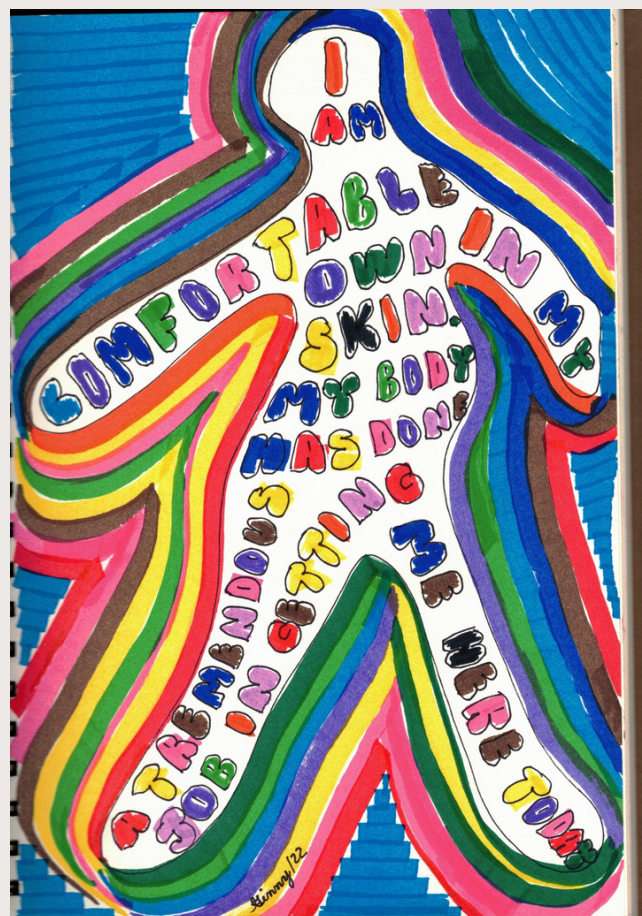 I
AM
COMFORTABLE
IN MY
OWN
SKIN.
MY BODY
HAS DONE
A TREMENDOUS
JOB IN GETTING
ME HERE TODAY
Ginny/22